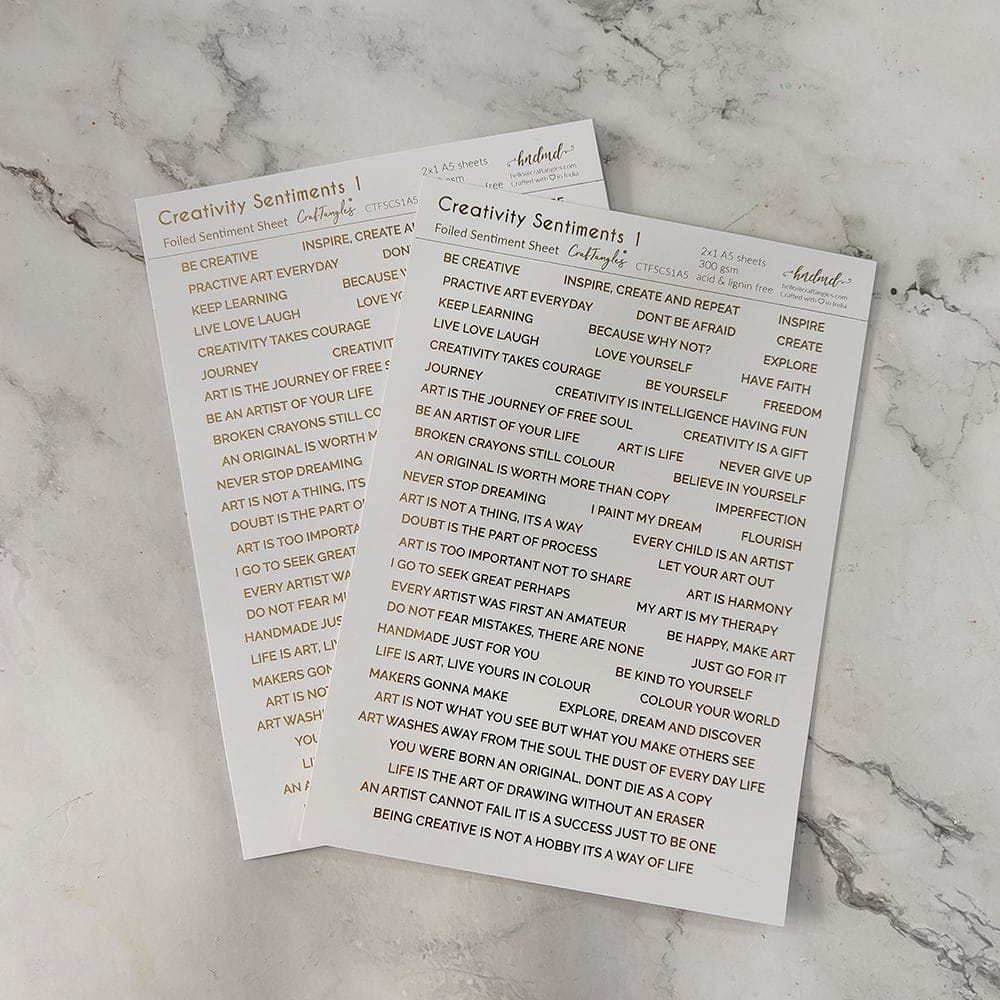 Creativity Sentiments 1
Foiled Sentiment Sheet CrafTangles CTFSCS1A5
2x1 A5 sheets
free
hndmd
hello@craftangles.com
Crafted with ♡ in India
BE CREATIVE INSPIRE, CREATE
PRACTIVE ART EVERYDAY DONT
KEEP LEARNING BECAUSE
LIVE LOVE LAUGH LOVE
CREATIVITY TAKES COURAGE
JOURNEY
ART IS THE JOURNEY OF FREE
BE AN ARTIST OF YOUR LIFE
BROKEN CRAYONS STILL
AN ORIGINAL IS WORTH
NEVER STOP DREAMING
ART IS NOT A THING, ITS
DOUBT IS THE PART
ART IS TOO
I GO TO SEEK GREAT
EVERY ARTIST
DO NOT FEAR
HANDMADE
LIFE IS ART,
MAKERS
ART IS
ART
Creativity Sentiments 1
Foiled Sentiment Sheet CrafTangles CTFSCS1A5
2x1 A5 sheets
300 gsm
acid & lignin free
hndmd
hello@craftangles.com
Crafted with ♡ in India
BE CREATIVE INSPIRE, CREATE AND REPEAT INSPIRE
PRACTIVE ART EVERYDAY DONT BE AFRAID CREATE
KEEP LEARNING BECAUSE WHY NOT? EXPLORE
LIVE LOVE LAUGH LOVE YOURSELF HAVE FAITH
CREATIVITY TAKES COURAGE BE YOURSELF FREEDOM
JOURNEY CREATIVITY IS INTELLIGENCE HAVING FUN
ART IS THE JOURNEY OF FREE SOUL CREATIVITY IS A GIFT
BE AN ARTIST OF YOUR LIFE ART IS LIFE NEVER GIVE UP
BROKEN CRAYONS STILL COLOUR BELIEVE IN YOURSELF
AN ORIGINAL IS WORTH MORE THAN COPY IMPERFECTION
NEVER STOP DREAMING I PAINT MY DREAM FLOURISH
ART IS NOT A THING, ITS A WAY EVERY CHILD IS AN ARTIST
DOUBT IS THE PART OF PROCESS LET YOUR ART OUT
ART IS TOO IMPORTANT NOT TO SHARE ART IS HARMONY
I GO TO SEEK GREAT PERHAPS MY ART IS MY THERAPY
EVERY ARTIST WAS FIRST AN AMATEUR BE HAPPY, MAKE ART
DO NOT FEAR MISTAKES, THERE ARE NONE JUST GO FOR IT
HANDMADE JUST FOR YOU BE KIND TO YOURSELF
LIFE IS ART, LIVE YOURS IN COLOUR COLOUR YOUR WORLD
MAKERS GONNA MAKE EXPLORE, DREAM AND DISCOVER
ART IS NOT WHAT YOU SEE BUT WHAT YOU MAKE OTHERS SEE
ART WASHES AWAY FROM THE SOUL THE DUST OF EVERY DAY LIFE
YOU WERE BORN AN ORIGINAL, DONT DIE AS A COPY
LIFE IS THE ART OF DRAWING WITHOUT AN ERASER
AN ARTIST CANNOT FAIL IT IS A SUCCESS JUST TO BE ONE
BEING CREATIVE IS NOT A HOBBY ITS A WAY OF LIFE